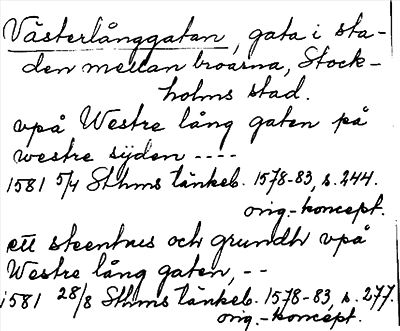 Västerlånggatan, gata i sta-
den mellan broarna, Stock-
holms stad.
vpå Westre lång gaten på
westre sijden ----
1581 5/4 Sthms tänkeb. 1578-83, s. 244.
orig.-koncept.
ett steenhus och grundh vpå
Westre lång gaten, --
1581 28/8 Sthms tänkeb. 1578-83, s. 277.
orig.-koncept.